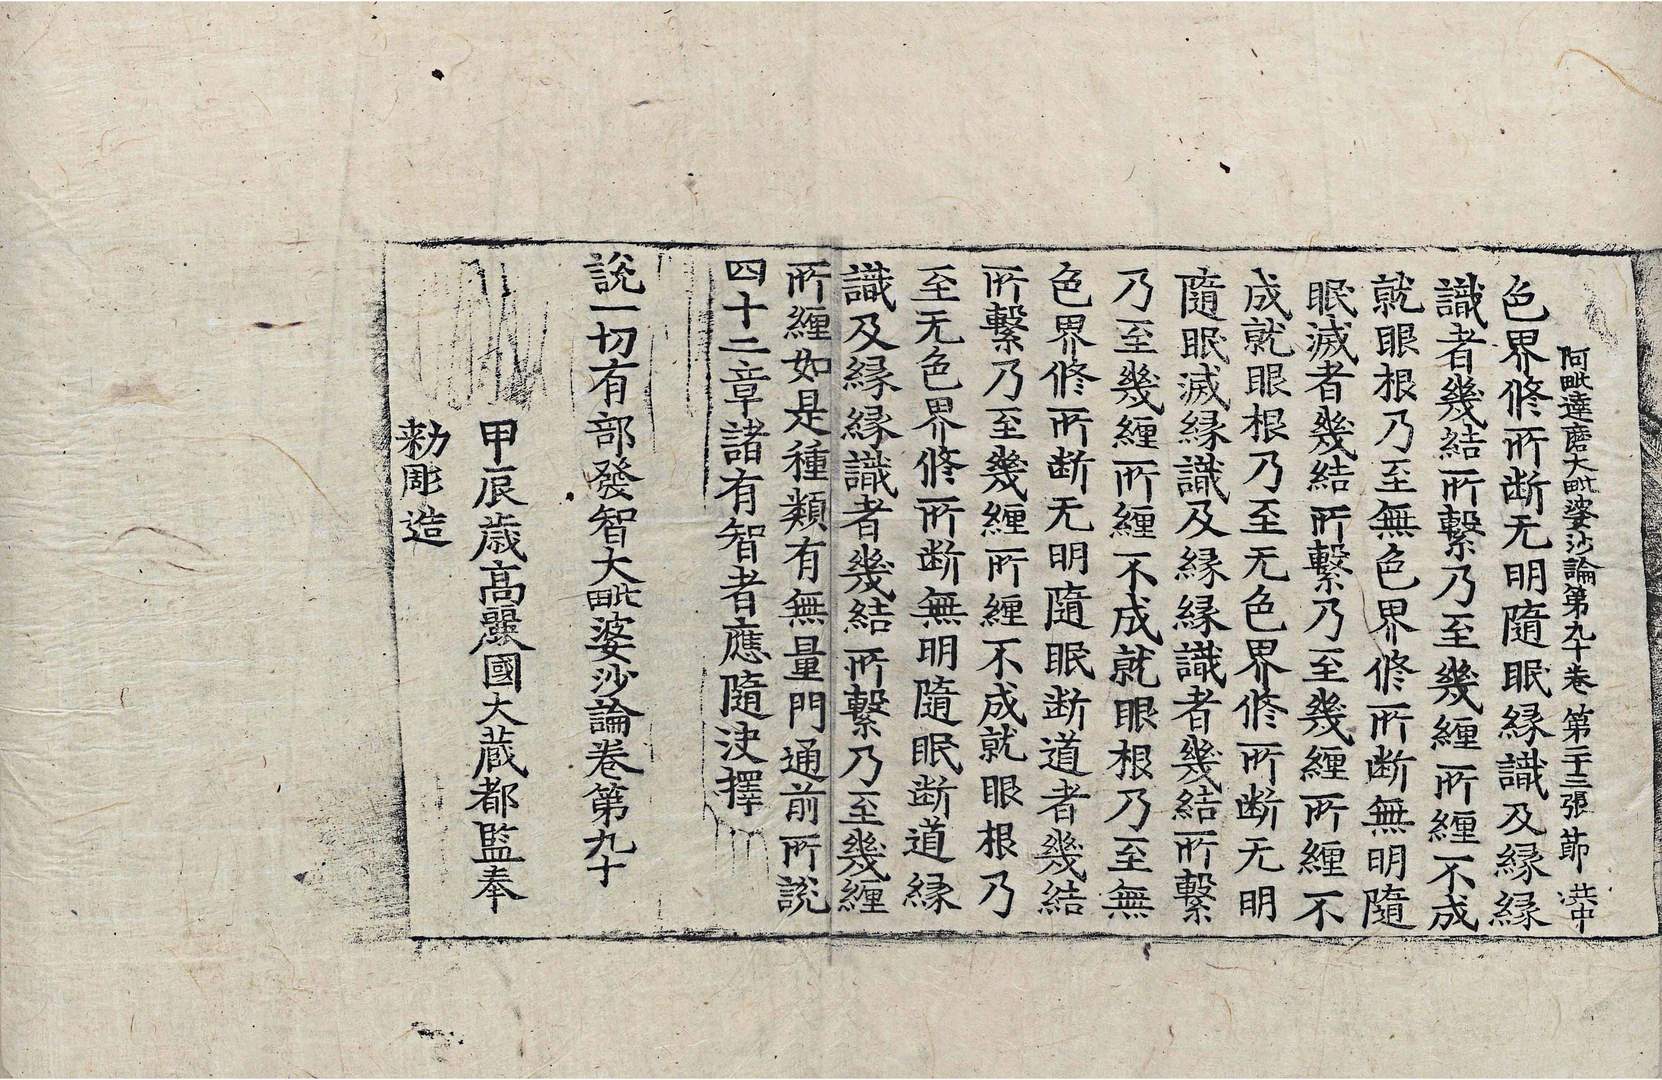 阿毗達磨大毗婆沙論第九十卷 第二十三張 莭
色界修所断无明隨眠縁識及縁縁
識者幾結所繫乃至幾纏所纏不成
就眼根乃至無色界修所断無明隨
眠滅者幾結所繫乃至幾纏所纏不
成就眼根乃至无色界修所断无明
隨眠滅縁識及縁縁識者幾結所繫
乃至幾纏所纏不成就眼根乃至無
色界修所断无明隨眠断道者幾結
所繫乃至幾纏所纏不成就眼根乃
至无色界修所断無明隨眠断道縁
識及縁縁識者幾結所繫乃至幾纏
所纏如是種類有無量門通前所說
四十二章諸有智者應隨決擇
說一切有部發智大毗婆沙論卷第九十
甲辰歲高麗國大藏都監奉
勑彫造